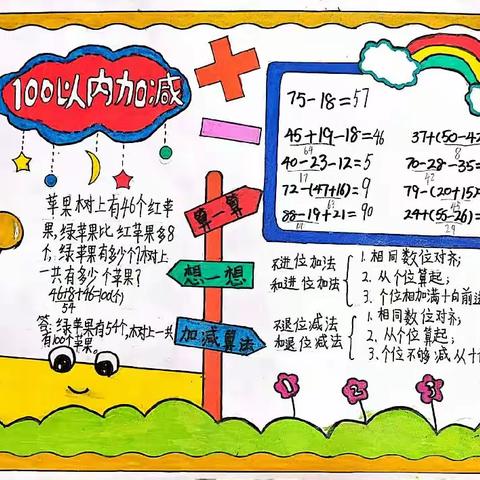 100以内加减
苹果树上有46个红苹
果,绿苹果比红苹果多8
个,绿苹果有多少个?树上
一共有多少个苹果?
46+8+46=100(个)
54
答:绿苹果有54个,树上一共
有100个苹果。
算一算
想一想
加减算法
75-18=57
45+19-18=46
64
40-23-12=5
17
72-(47+16)=9
88-19+21=90
37+(50-42
8
70-28-35=
42
79-(20+15)
24+(55-26)=
29
不进位加法
和进位加法
1.相同数位对齐;
2.从个位算起;
3.个位相加满十向前进
不退位减法
和退位减法
1.相同数位对齐;
2.从个位算起;
3.个位不够减从十
1
2
3